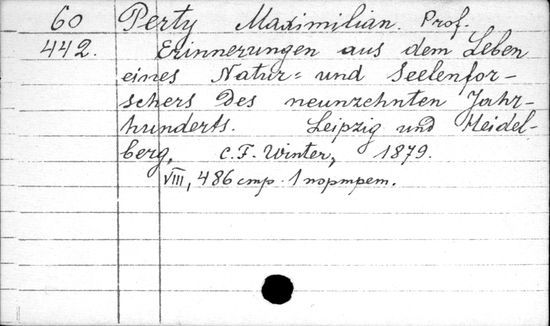 60 Perty Maximilian. Prof.
442. Erinnerungen aus dem Leben
eines Natur= und Seelenfor-
schers des neunzehnten Jahr-
hunderts. Leipzig und Heidel-
berg, C.F. Winter, 1879.
VIII, 486 стр. 1 портрет.